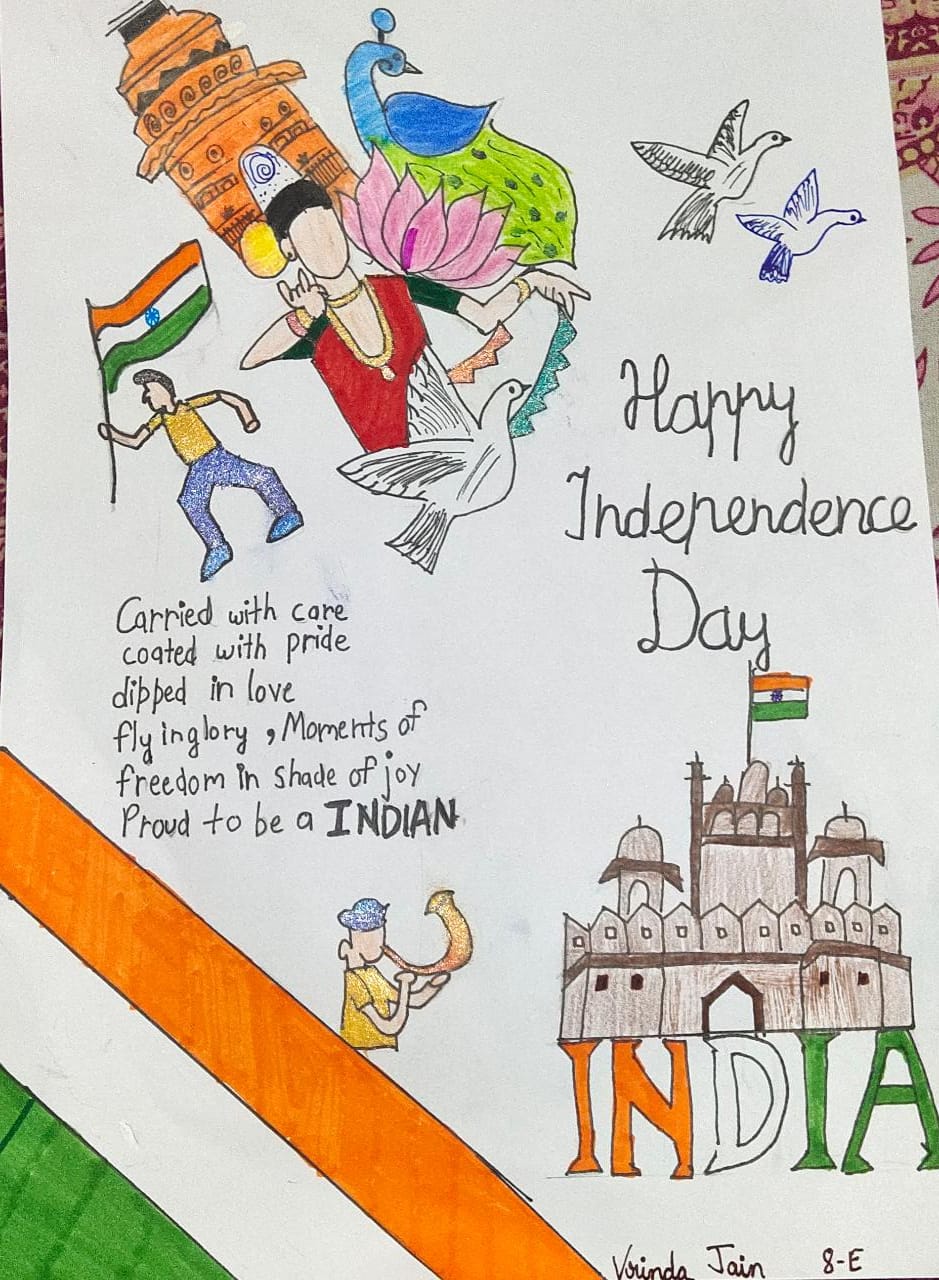 Happy
Independence
Day
Carried with care
coated with pride
dipped in love
fly inglory , Moments of
freedom in shade of joy
Proud to be a INDIAN
INDIA
Vrinda Jain 8-E